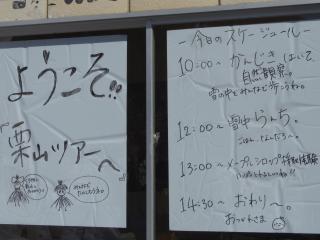 ようこそ!!
『栗山ツアーへ』
－今日のスケージュール－
10:00～ かんじきはいて、
自然観察。
雪の中をみんなで歩こうね。
12:00～ 雪中らんち。
ごはん、なんだろ～。
13:00～ メープルシロップ採取体験
14:30～ おわり～。
おつかれさま